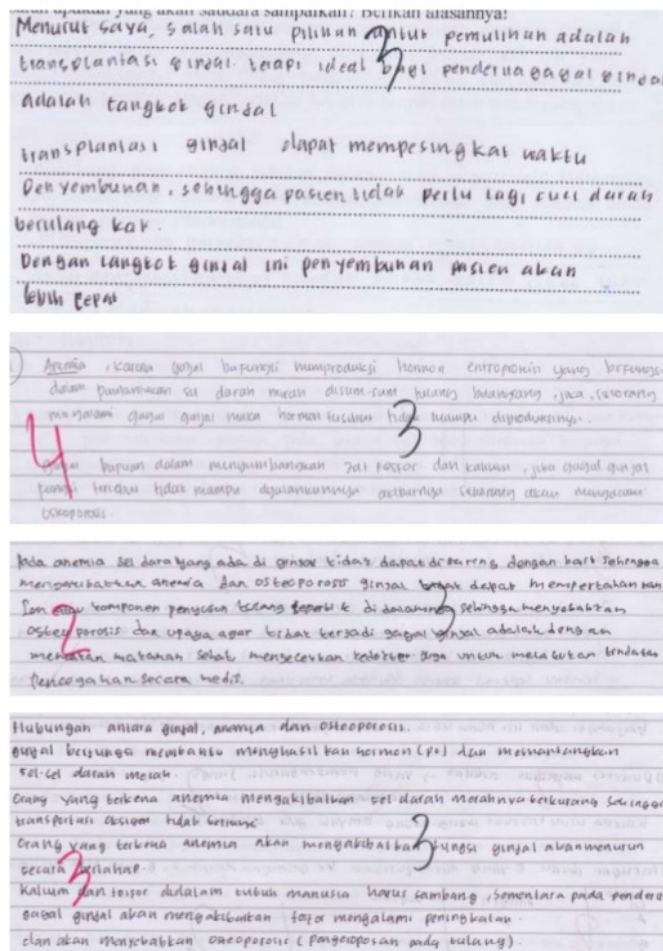 saran apakah yang akan saudara sampaikan? Berikan alasannya!
Menurut saya, salah satu pilihan untuk pemulihan adalah
transplantasi ginjal. terapi ideal bagi penderita gagal ginjal
adalah cangkok ginjal
3
transplantasi ginjal dapat mempesingkat waktu
Penyembuhan, sehingga pasien tidak perlu lagi cuci darah
berulang kali.
Dengan cangkok ginjal ini penyembuhan pasien akan
lebih cepat
Anemia, karena gagal berfungsi memproduksi hormon entropoitin yang berfungsi
dalam sel darah merah disum-sum tulang , jika seseorang
mengalami gagal ginjal maka hormon tersebut tidak mampu diproduksinya.
4
3
ginjal berperan dalam menyeimbangkan zat Fosfor dan kalium, jika gagal ginjal
fungsi tersebut tidak mampu dijalankannya akibatnya seseorang akan mengalami
osteoporosis
Pada anemia sel darah yang ada di ginjal tidak dapat disaring dengan baik sehingga
mengakibatkan anemia dan osteoporosis ginjal dapat mempertahankan
Ion komponen penyusun tulang seperti k di dalamnya sehingga menyebabkan
2
3
osteoporosis dan upaya agar tidak terjadi gagal ginjal adalah dengan
memakan makanan sehat, mengecekkan kedokter juga untuk melakukan tindakan
Pencegahan secara medis.
Hubungan antara ginjal, anemia dan osteoporosis.
ginjal berfungsi membantu menghasilkan hormon (po) dan
sel-sel darah merah.
Orang yang terkena anemia mengakibatkan sel darah merahnya berkurang sehingga
transportasi oksigen tidak
Orang yang terkena anemia akan mengakibatkan fungsi ginjal akan menurun
secara bertahap.
3
3
Kalium dan fosfor didalam tubuh manusia harus seimbang, Sementara pada penderita
gagal ginjal akan mengakibatkan fosfor mengalami peningkatan.
dan akan menyebabkan osteoporosis (pengeroposan pada tulang).